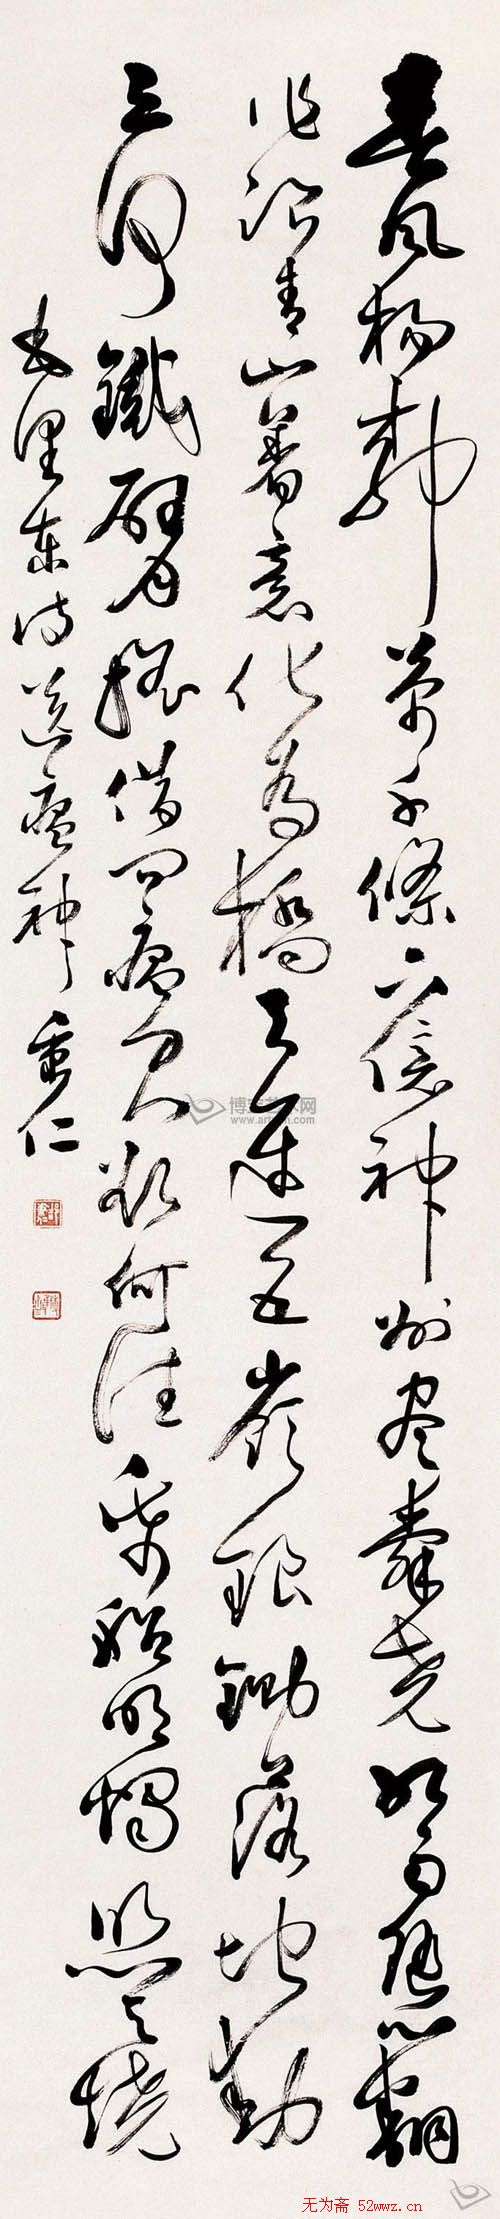 春风杨柳萬千條六億神州尽舜尧红雨随心翻
作浪青山着意化为橋天連五嶺銀鋤落地動
三河鐵臂摇借问瘟君欲何往纸船明烛照天烧
毛泽東诗送瘟神 重仁
博宝艺术网
www.artxun.com
无为斋 52wwz.cn